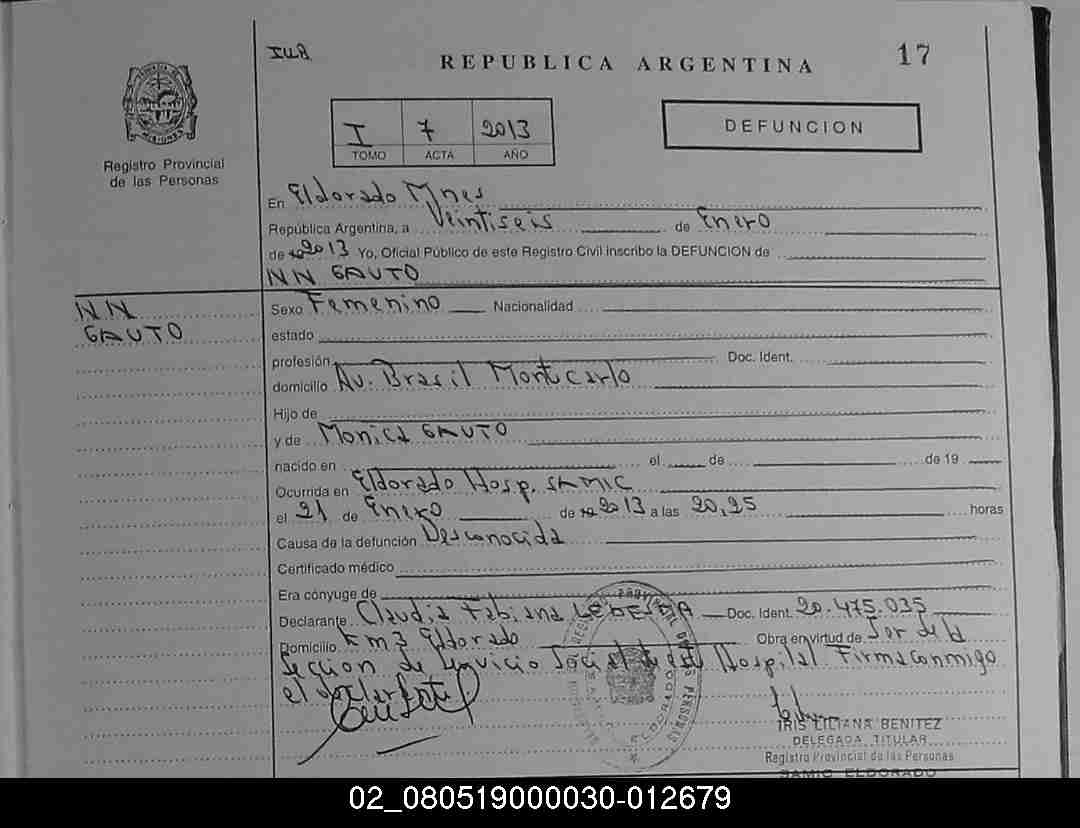 IUB
REPUBLICA ARGENTINA
17
PROVINCIA DE
MISIONES
Registro Provincial
de las Personas
I 7 2013
TOMO ACTA AÑO
DEFUNCION
En Eldorado Mnes
República Argentina, a Veintiseis de Enero
de 2013 Yo, Oficial Público de este Registro Civil inscribo la DEFUNCION de
NN GAUTO
NN
GAUTO
Sexo Femenino Nacionalidad
estado
profesión Doc. Ident.
domicilio Av. Brasil Montecarlo
Hijo de
y de Monica GAUTO
nacido en el de de 19
Ocurrida en Eldorado Hosp. SAMIC
el 21 de Enero de 2013 a las 20,25 horas
Causa de la defunción Desconocida
Certificado médico
Era cónyuge de
Declarante Claudia Fabiana LEDESMA Doc. Ident. 20.475.035
Domicilio Km 3 Eldorado Obra en virtud de Ser de la
Seccion de Servicio Social de este Hospital Firma conmigo
el declarante
IRIS LILIANA BENITEZ
DELEGADA TITULAR
Registro Provincial de las Personas
SAMIC ELDORADO
02_080519000030-012679